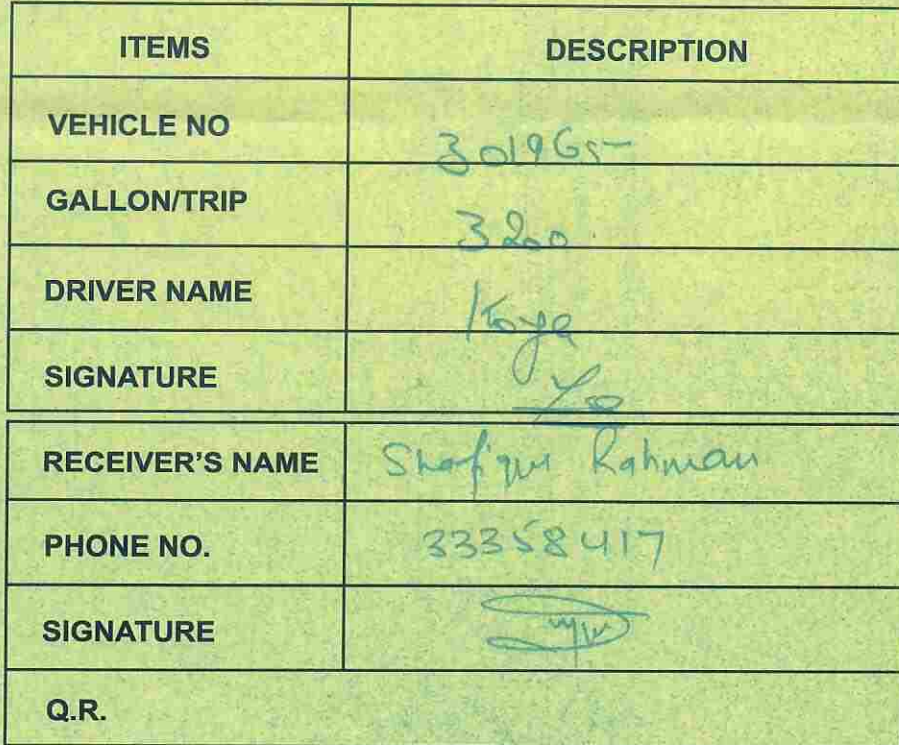 ITEMS DESCRIPTION
VEHICLE NO 301965
GALLON/TRIP 3200
DRIVER NAME Koya
SIGNATURE
RECEIVER'S NAME Shafique Rahman
PHONE NO. 33358417
SIGNATURE
Q.R.